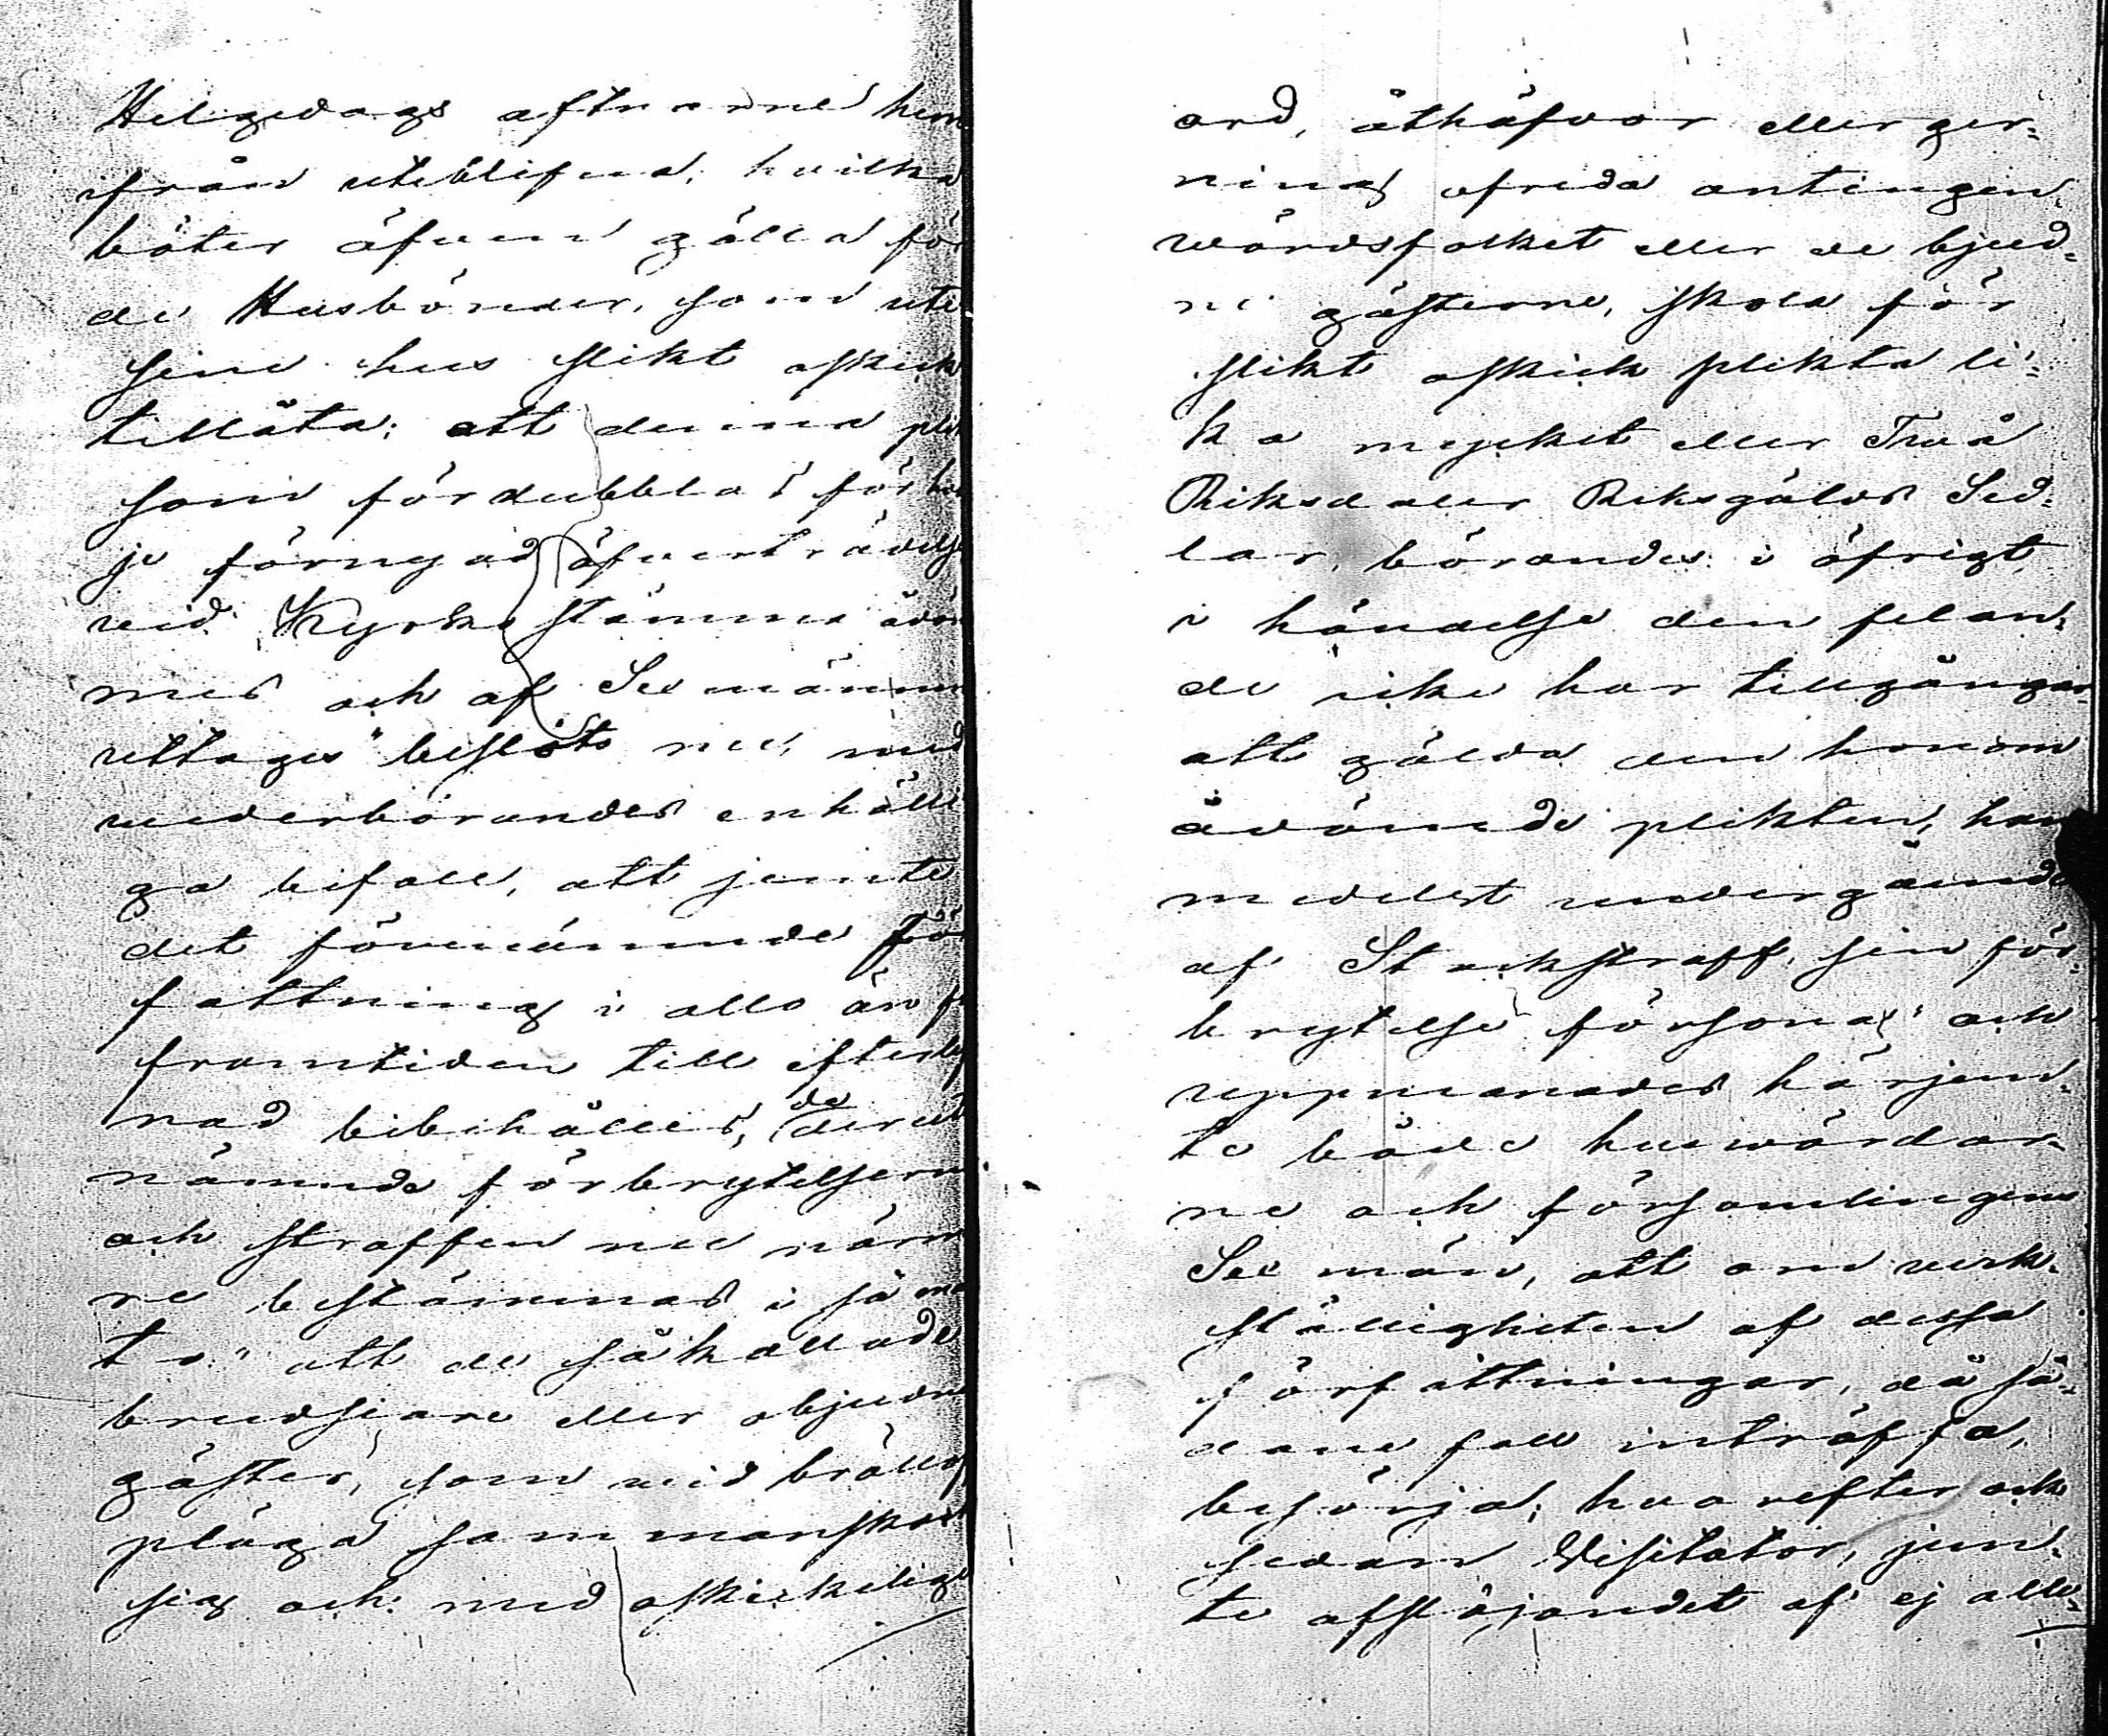 Helgedags aftnarne hem
ifrån uteblifna, hvilka
böter äfven gälla för
de Husbönder, som uti
sine hus slikt oskick
tillåta; att denna plik
som fördubblas för
je förnyad öfverträdelse
vid Kyrkostämma ådöm
mes och af Sexmännen
uttages" beslöts nu, med
vederbörandes enhälli
ga bifall, att jemte
det förenämnde För
fattning i allo än för
framtiden till efterlef
nad bibehålles, de deruti
nämnde förbrytelserne
och straffen nu närma
re bestämmas i så mo
to" att de så kallade
brudsjare eller objudne
gäster, som vid bröllop
pläga samman skocka
sig och med oskickelige
ord, åthäfvor eller ger-
ning ofreda antingen
wärdsfolket eller de bjud-
ne gästerne, skola för
slikt oskick plikta li-
ka mycket eller Två
Riksdaler Riksgälds Sed-
lar, börandes i öfrigt,
i händelse den felan-
de icke har tillgångar
att gälda den honom
ådömde plikten, han
medelst undergående
af Stockstraff, sin för-
brytelse försona" och
uppmanades härjem-
te både huswärdar-
ne och församlingens
Sex män, att om verk-
ställigheten af dessa
författningar, då så-
dane fall inträffa,
besörja; hvarefter och
sedan Visitator, jem-
te afslöjandet af ej alle-